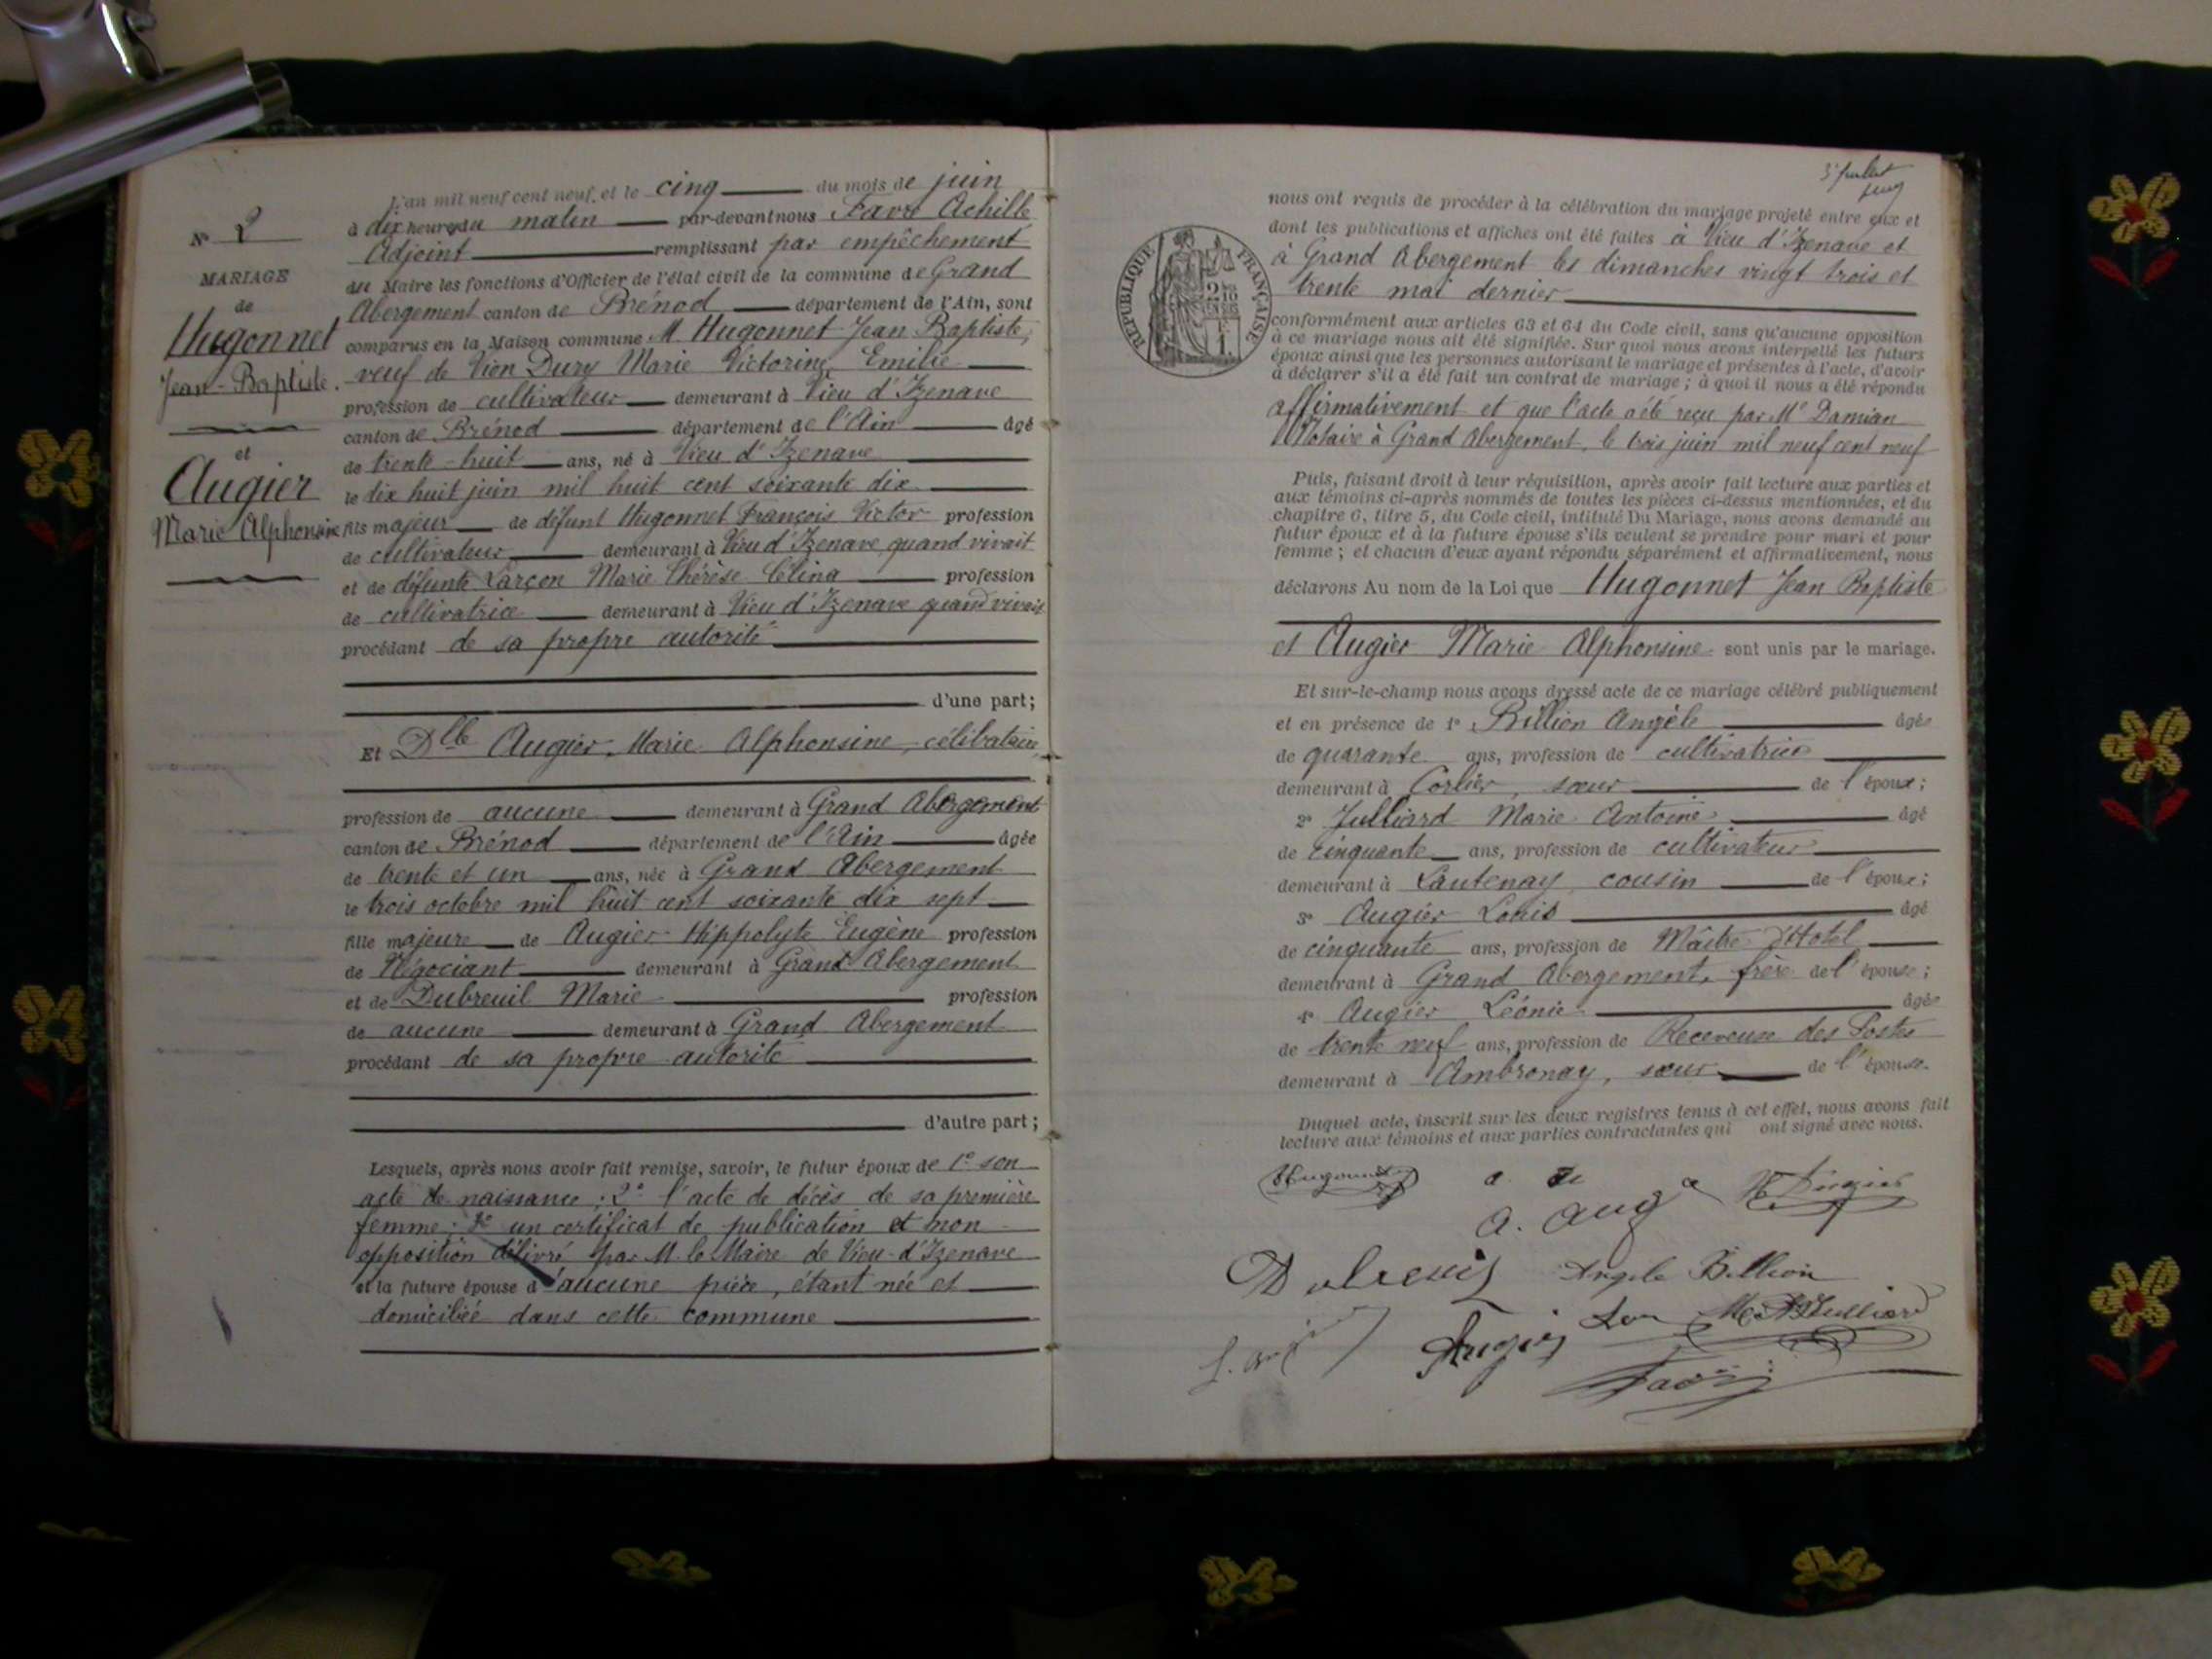 N° 2
MARIAGE
de
Hugonnet
Jean-Baptiste.
et
Augier
Marie Alphonsine
L'an mil neuf cent neuf, et le cinq du mois de juin
à dix heures du matin par-devant nous Favre Achille
Adjoint remplissant par empêchement
du Maire les fonctions d'Officier de l'état civil de la commune de Grand
Abergement canton de Brénod département de l'Ain, sont
comparus en la Maison commune M. Hugonnet Jean Baptiste,
veuf de Vion Dury Marie Victorine Emilie
profession de cultivateur demeurant à Vieu d'Izenave
canton de Brénod département de l'Ain âgé
de trente-huit ans, né à Vieu d'Izenave
le dix huit juin mil huit cent soixante dix
fils majeur de défunt Hugonnet François Victor profession
de cultivateur demeurant à Vieu d'Izenave, quand vivait
et de défunte Larçon Marie Thérèse Célina profession
de cultivatrice demeurant à Vieu d'Izenave quand vivait
procédant de sa propre autorité
d'une part;
Et Dlle Augier, Marie Alphonsine, célibataire,
profession de aucune demeurant à Grand Abergement
canton de Brénod département de l'Ain âgée
de trente et un ans, née à Grand Abergement
le trois octobre mil huit cent soixante dix sept
fille majeure de Augier Hippolyte Eugène profession
de Négociant demeurant à Grand Abergement
et de Dubreuil Marie profession
de aucune demeurant à Grand Abergement
procédant de sa propre autorité
d'autre part;
Lesquels, après nous avoir fait remise, savoir, le futur époux de 1° son
acte de naissance; 2° l'acte de décès de sa première
femme; 3° un certificat de publication et non
opposition délivré par M. le Maire de Vieu-d'Izenave
et la future épouse d'aucune pièce, étant née et
domiciliée dans cette commune
3e feuillet
RÉPUBLIQUE FRANÇAISE
nous ont requis de procéder à la célébration du mariage projeté entre eux et
dont les publications et affiches ont été faites à Vieu d'Izenave et
à Grand Abergement les dimanches vingt trois et
trente mai dernier
conformément aux articles 63 et 64 du Code civil, sans qu'aucune opposition
à ce mariage nous ait été signifiée. Sur quoi nous avons interpellé les futurs
époux ainsi que les personnes autorisant le mariage et présentes à l'acte, d'avoir
à déclarer s'il a été fait un contrat de mariage; à quoi il nous a été répondu
affirmativement et que l'acte a été reçu par Me Damian
Notaire à Grand Abergement, le trois juin mil neuf cent neuf
Puis, faisant droit à leur réquisition, après avoir fait lecture aux parties et
aux témoins ci-après nommés de toutes les pièces ci-dessus mentionnées, et du
chapitre 6, titre 5, du Code civil, intitulé Du Mariage, nous avons demandé au
futur époux et à la future épouse s'ils veulent se prendre pour mari et pour
femme; et chacun d'eux ayant répondu séparément et affirmativement, nous
déclarons Au nom de la Loi que Hugonnet Jean Baptiste
et Augier Marie Alphonsine sont unis par le mariage.
Et sur-le-champ nous avons dressé acte de ce mariage célébré publiquement
et en présence de 1° Billion Angèle âgée
de quarante ans, profession de cultivatrice
demeurant à Corlier, sœur de l'époux;
2° Julliard Marie Antoine âgé
de cinquante ans, profession de cultivateur
demeurant à Lantenay cousin de l'époux;
3° Augier Louis âgé
de cinquante ans, profession de Maître d'Hotel
demeurant à Grand Abergement, frère de l'épouse;
4° Augier Léonie âgée
de trente neuf ans, profession de Receveuse des Postes
demeurant à Ambronay, sœur de l'épouse.
Duquel acte, inscrit sur les deux registres tenus à cet effet, nous avons fait
lecture aux témoins et aux parties contractantes qui ont signé avec nous.
Hugonnet
H Augier
A. Aug
Dubreuil Angèle Billion
Augier